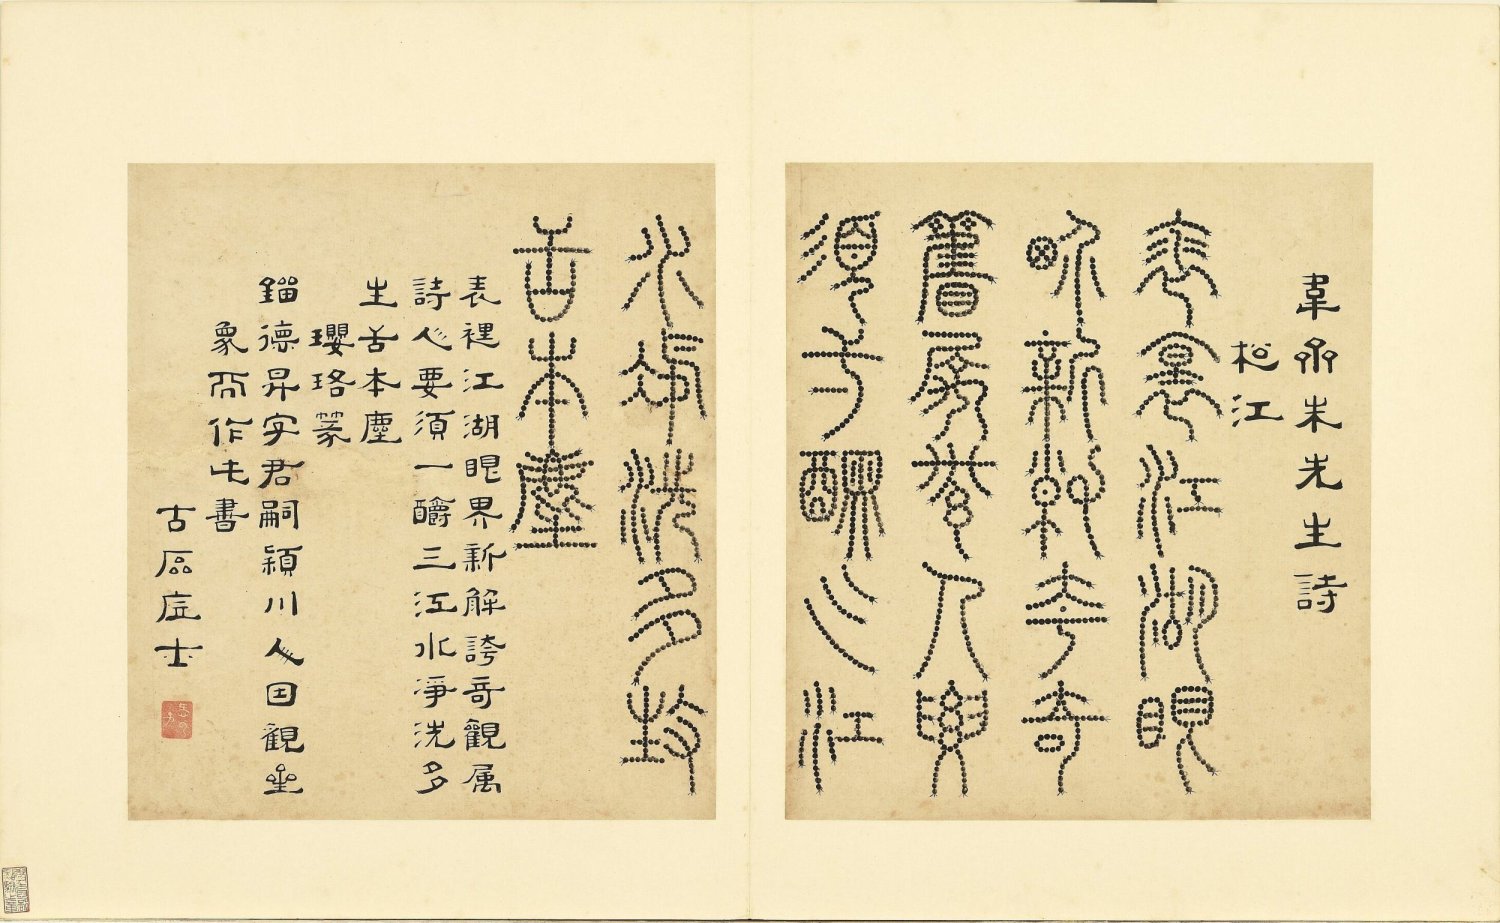 韋齋朱先生詩
松江
表裏江湖眼
界新解夸奇
觀屬詩人要
須一釂三江
水淨洗多生
舌本塵
表裡江湖眼界新解誇奇觀属
詩人要須一釂三江水淨洗多
生舌本塵
瓔珞篆
鎦德昇字君嗣潁川人因觀星
象而作此書
古 士